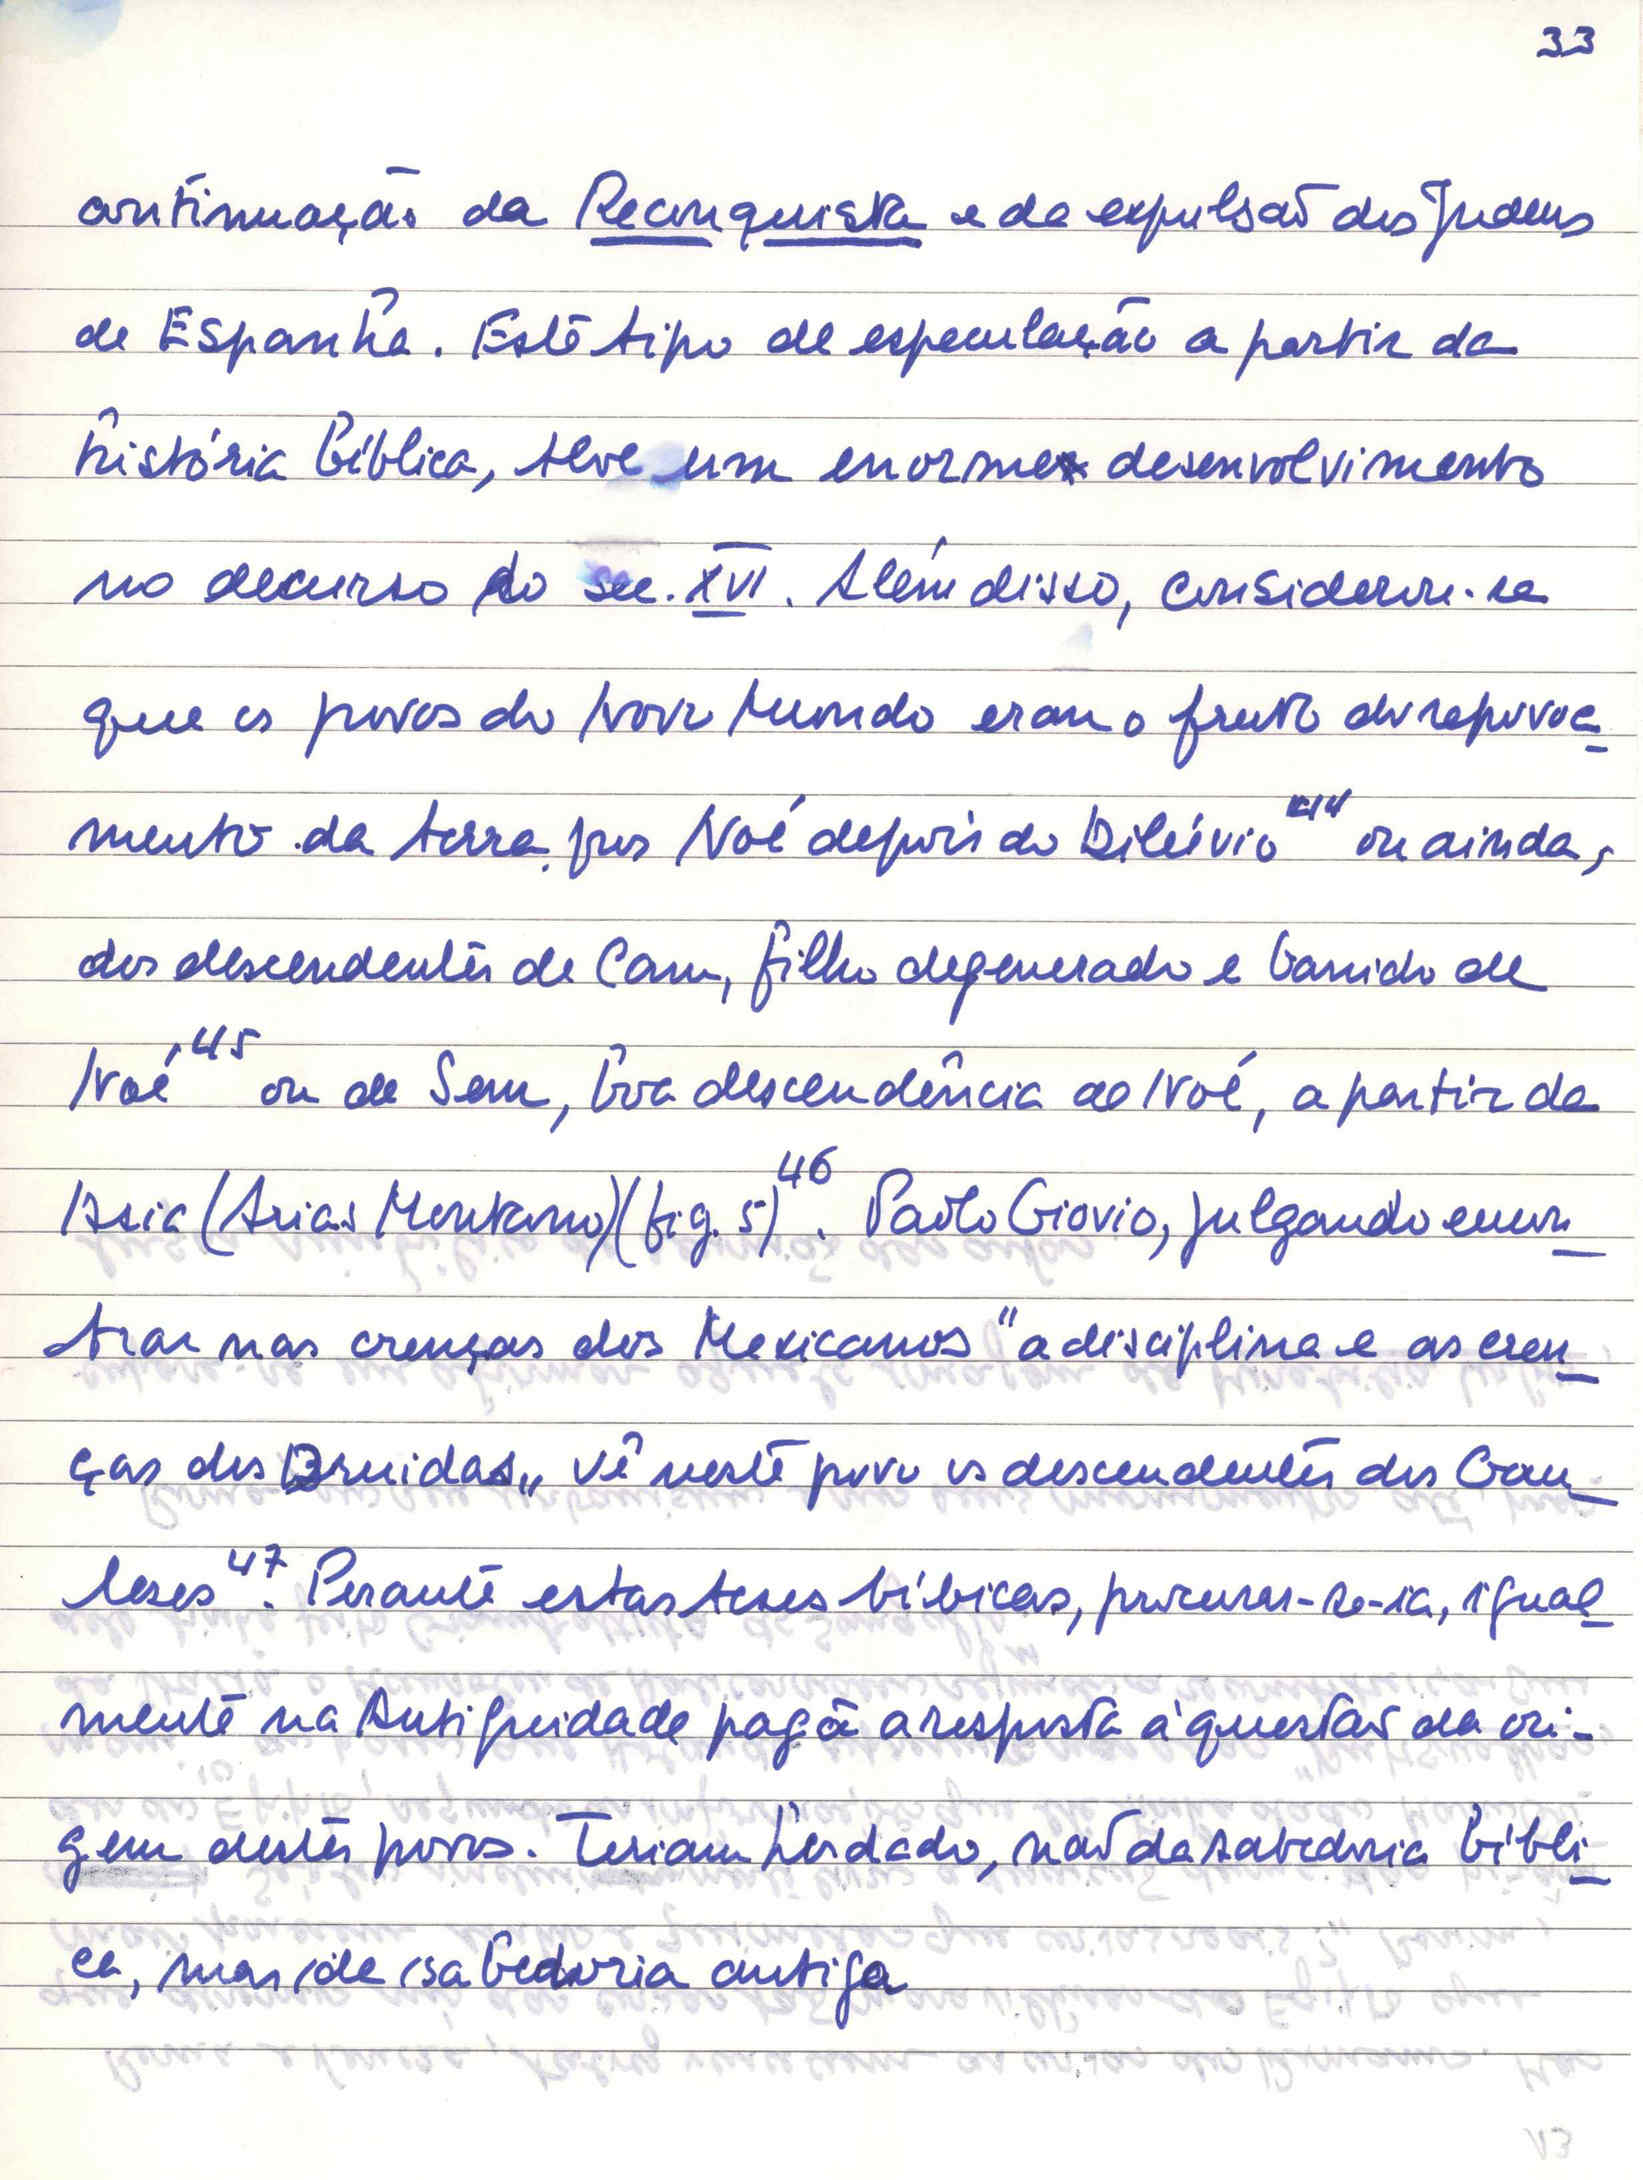 33
continuação da Reconquista e da expulsão dos Judeus
de Espanha. Este tipo de especulação a partir da
história bíblica, teve um enorme desenvolvimento
no decurso do sec. XVI. Além disso, considerou-se
que os povos do Novo Mundo eram o fruto do repovoa
mento da terra por Noé depois do Dilúvio 44 ou ainda,
dos descendentes de Cam, filho degenerado e banido de
Noé 45 ou de Sem, boa descendência de Noé, a partir da
Asia (Arias Montano) (fig. 5) 46. Paolo Giovio, julgando encon
trar nas crenças dos Mexicanos "a disciplina e as cren
ças dos Druidas" vê neste povo os descendentes dos Gau
leses 47. Perante estas teses bíbicas, procurar-se-ia, igual
mente na Antiguidade pagã a resposta à questão da ori-
gem destes povos. Teriam herdado, não da sabedoria bíbli
ca, mas de sabedoria antiga